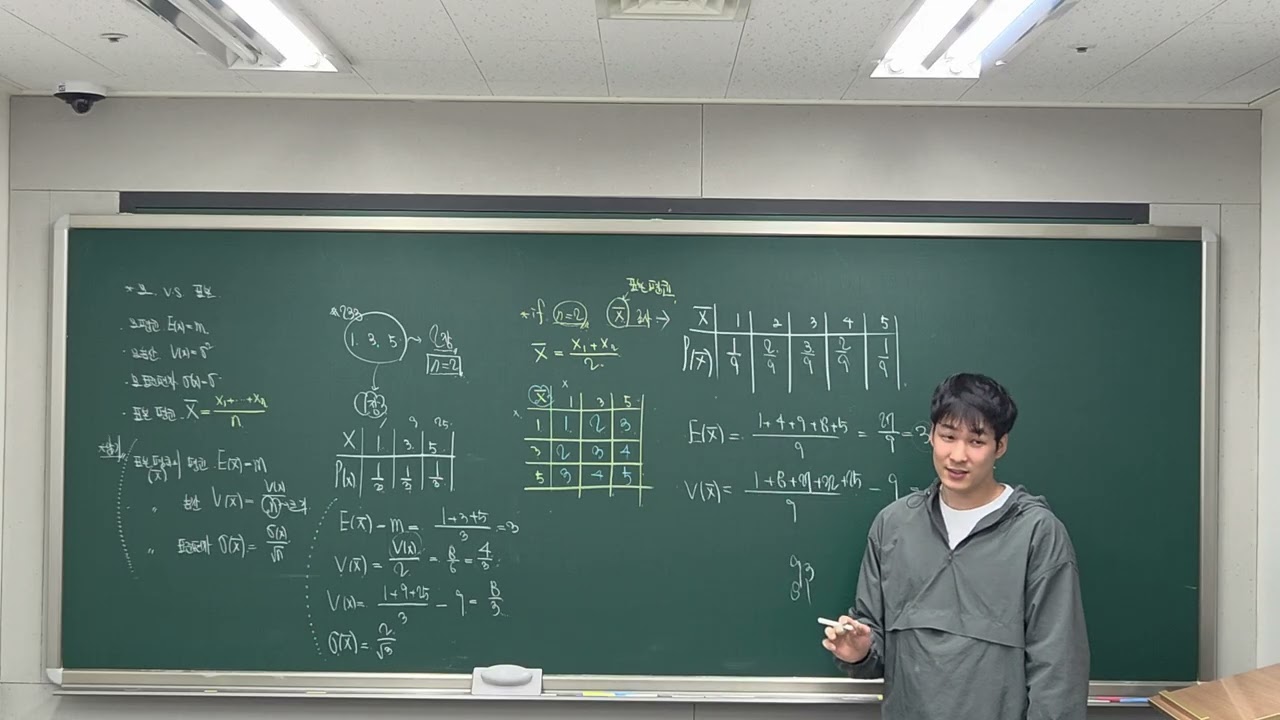 v.s 표본
모평균 E(x)=m
모분산 V(x)=σ²
모표준편차 σ(x)=σ
표본 평균 X̄ = (X₁+⋯+Xₙ)/n
표본 평균의 평균 E(X̄)=m
(X̄)
〃 분산 V(X̄)= V(x)/n
〃 표준편차 σ(X̄)= σ(x)/√n
1. 3. 5 →
n=2
9 25
X 1 3 5
P(x) 1/3 1/3 1/3
E(X̄)=m= (1+3+5)/3 =3
V(X̄)= V(x)/2 = 8/6 = 4/3
V(x)= (1+9+25)/3 - 9 = 8/3
σ(X̄)= 2/√3
표본평균
*if n=2 X̄ →
X̄ = (X₁+X₂)/2
X̄ 1 3 5
1 1 2 3
3 2 3 4
5 3 4 5
X̄ 1 2 3 4 5
P(X̄) 1/9 2/9 3/9 2/9 1/9
E(X̄)= (1+4+9+8+5)/9 = 27/9 =3
V(X̄)= (1+8+27+32+25)/9 - 9 =
93
81